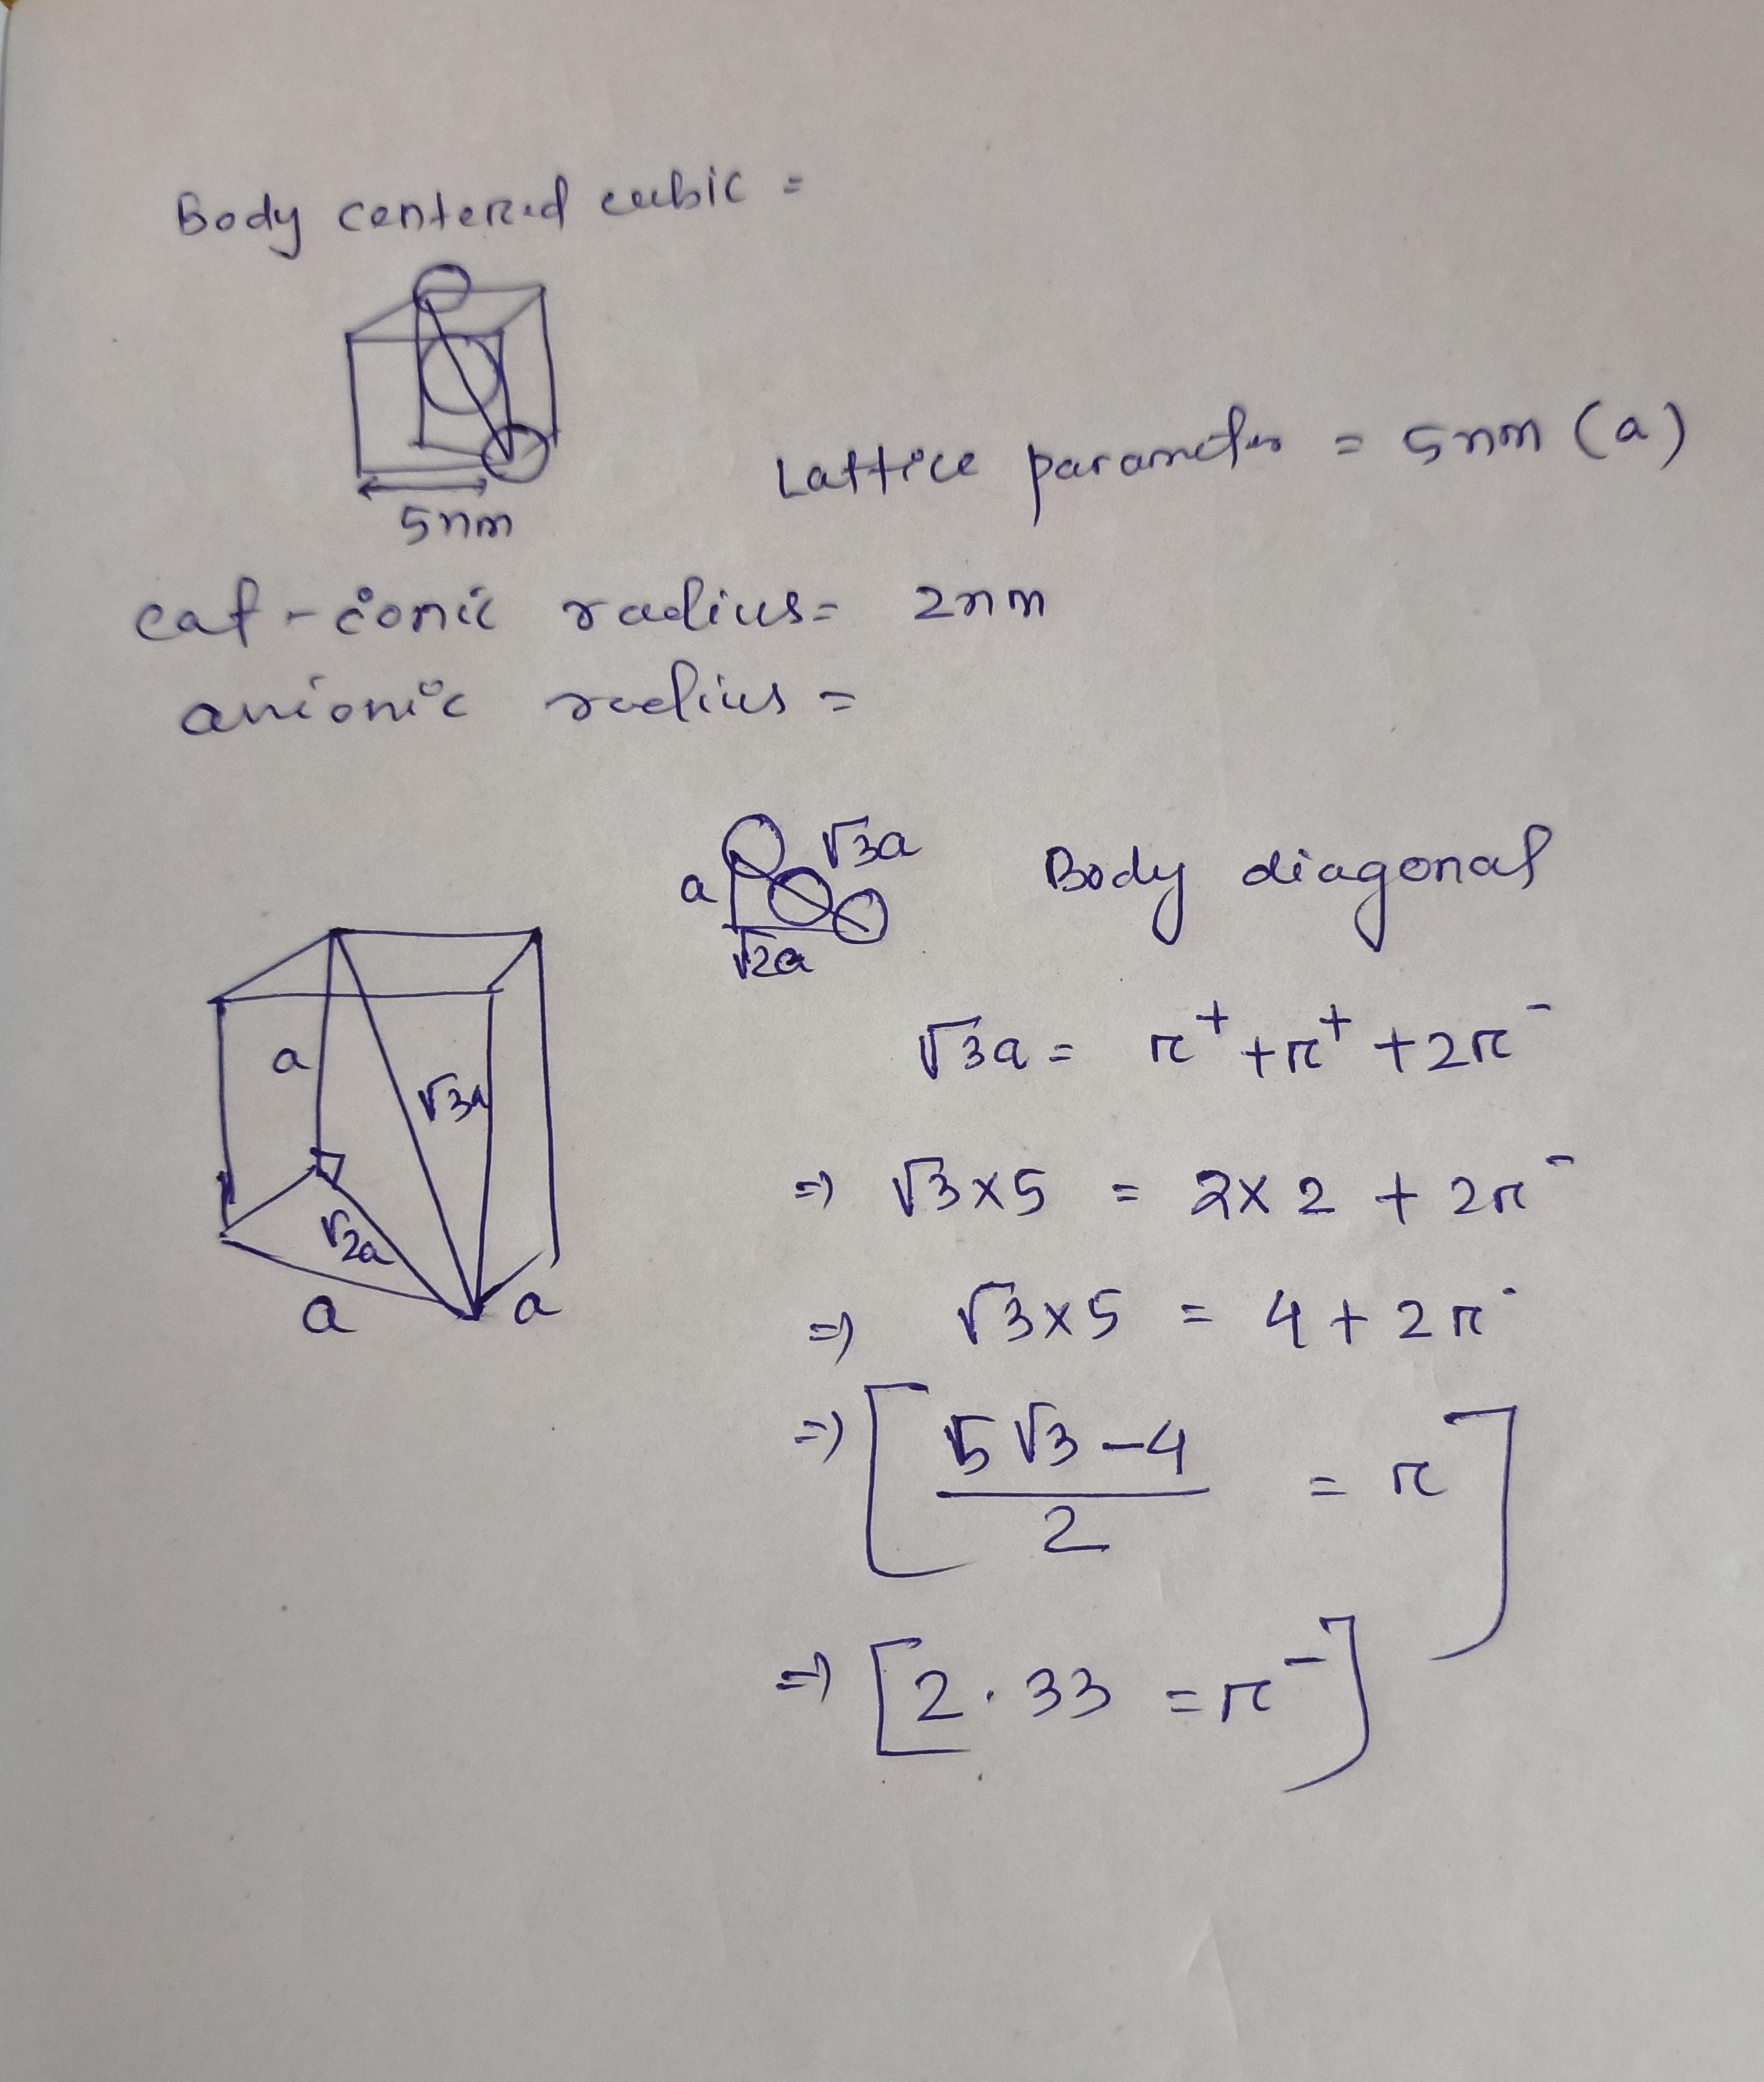 Body centered cubic =
5nm
Lattice parameter = 5nm (a)
cat-ionic radius = 2nm
anionic radius =
a √3a
√2a
Body diagonal
a
√3a
√2a
a a
√3a = r⁺ + r⁺ + 2r⁻
⇒ √3×5 = 2×2 + 2r⁻
⇒ √3×5 = 4 + 2r⁻
⇒ [ 5√3-4 / 2 = r ]
⇒ [2.33 = r⁻]